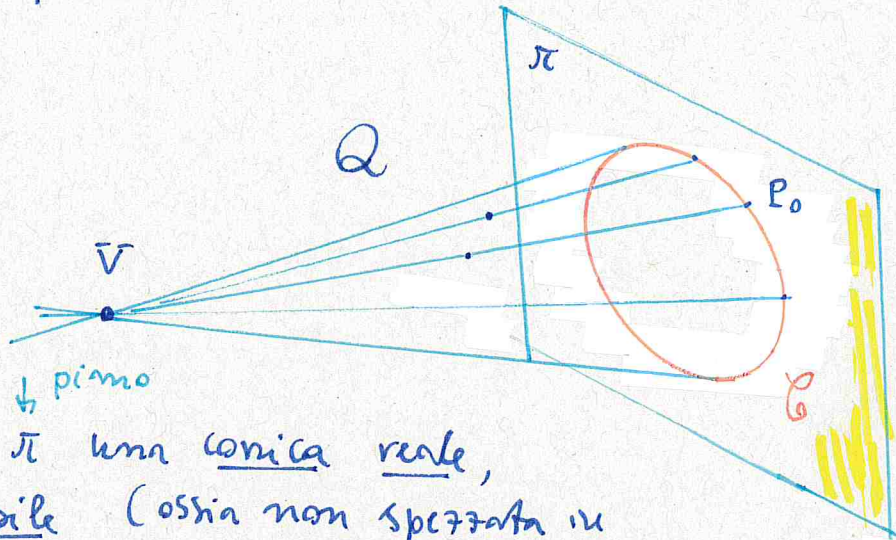 π
Q
P₀
V
↳ piano
C
π una conica reale,
(ossia non spezzata in